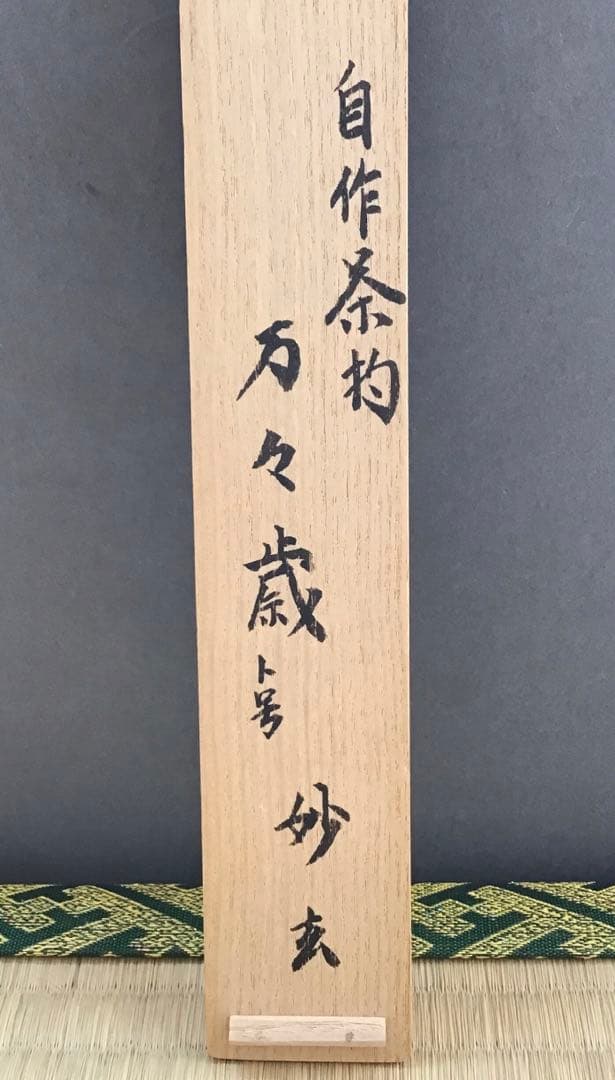 自作茶杓
万々歳
ト号
妙玄